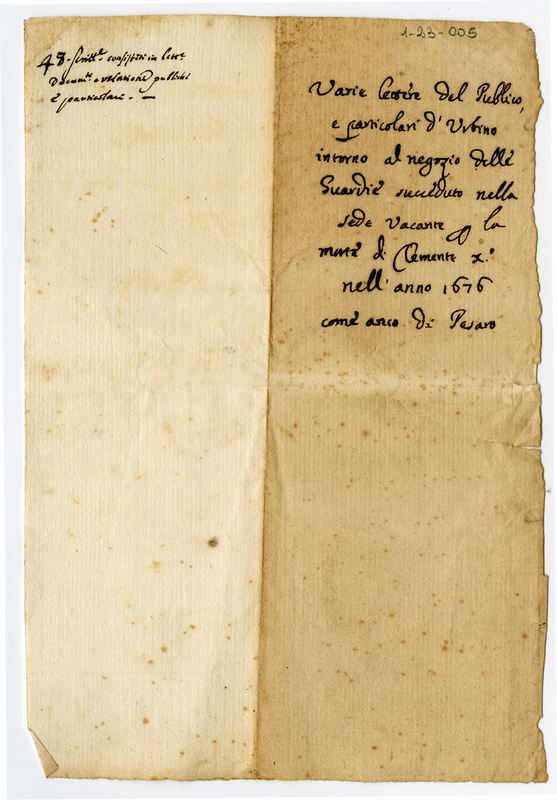 48. Scritt.e consistenti in lett.e
docum.ti e relationi publichi
e particolari. —
1-23-005
Varie lettere del Publico,
e particolari d' Urbino
intorno al negozio delle
Guardie succeduto nella
sede vacante p la
morte di Clemente x.º
nell' anno 1676
come anco di Pesaro